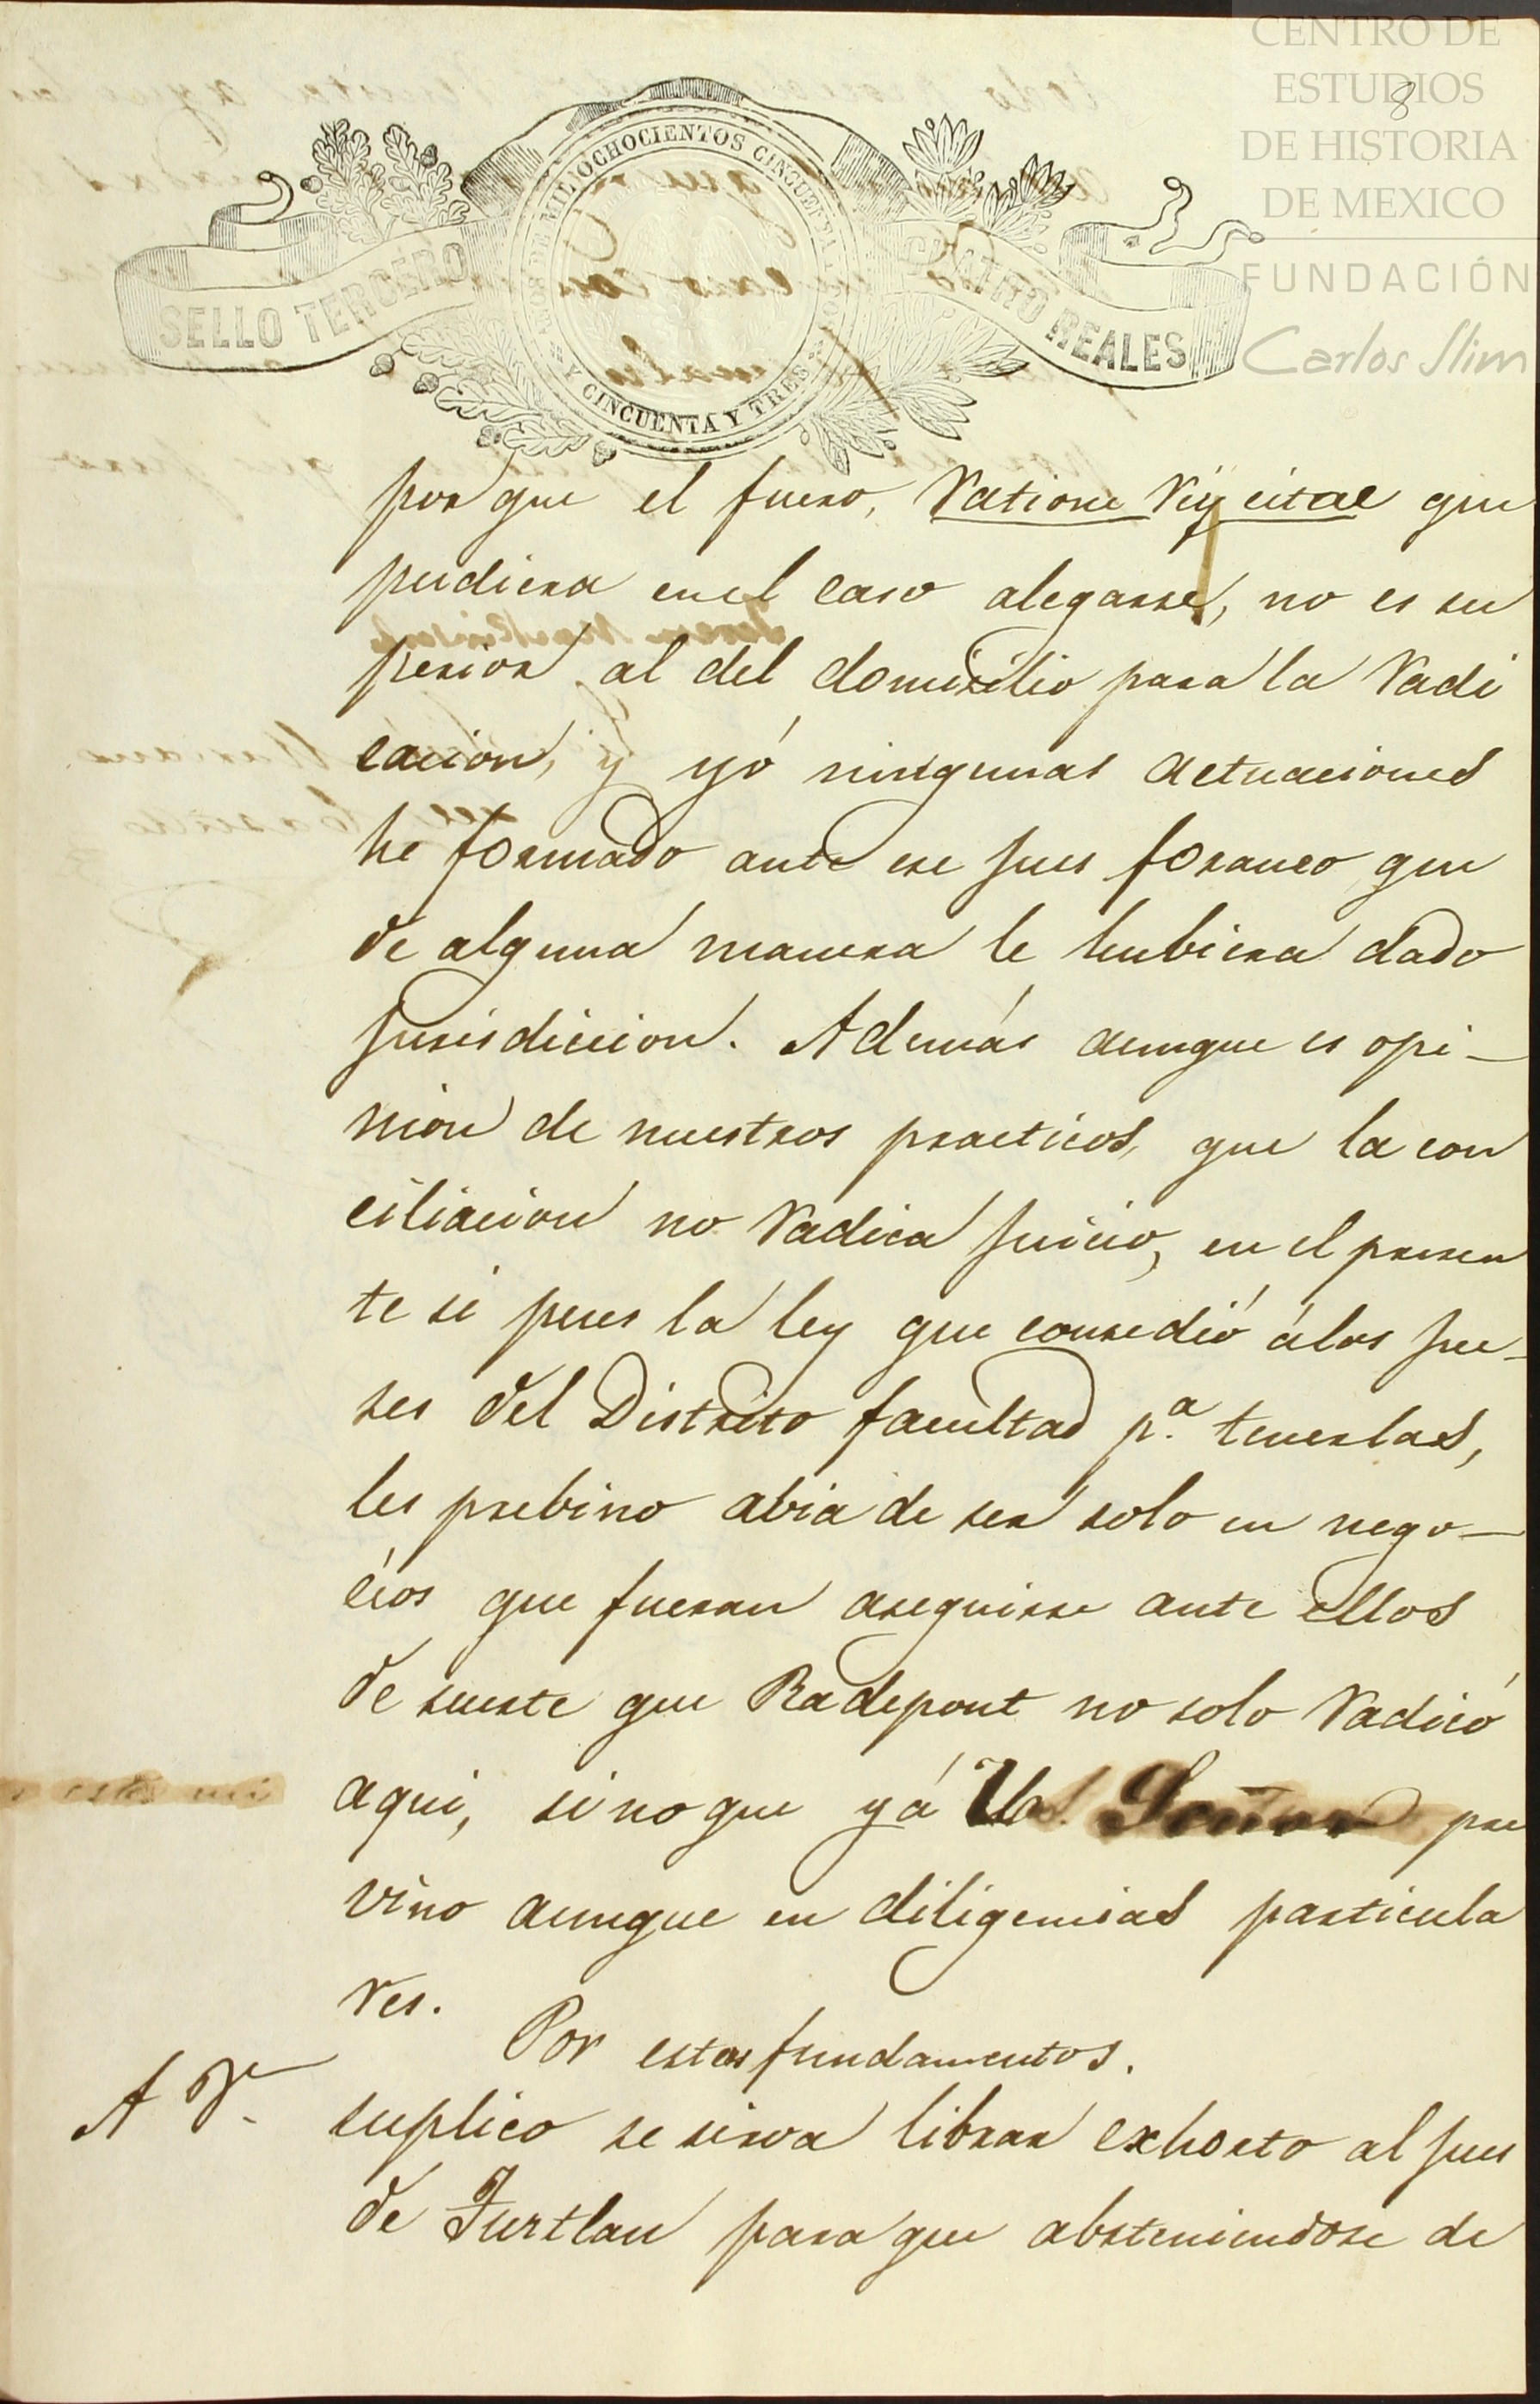 CENTRO DE
ESTUDIOS
DE HISTORIA
DE MEXICO
FUNDACIÓN
Carlos Slim
8
SELLO TERCERO
CUATRO REALES
AÑOS DE MIL OCHOCIENTOS CINCUENTA Y DOS
Y CINCUENTA Y TRES
por que el fuero, ratione citae que
pudiera en el caso alegarse, no es su
perior al del domicilio para la radi
cacion, y yó ningunas actuaciones
he formado ante ese Jues foraneo que
de alguna manera le hubiera dado
Jurisdiccion. Además aunque es opi-
nion de nuestros practicos, que la con
ciliacion no radica Juicio, en el presen
te si pues la ley que consedió álos Jue-
ses del Distrito facultad p.ª tenerlas,
les prebino abia de ser solo en nego-
cios que fueran aseguirse ante ellos
de suerte que Radepont no solo radicó
aqui, sino que yá Señor pre
vino aunque en diligencias particula
res.
Por estos fundamentos.
A V. suplico se sirva librar exhorto al Jues
de Turtlan para que absteniendose de